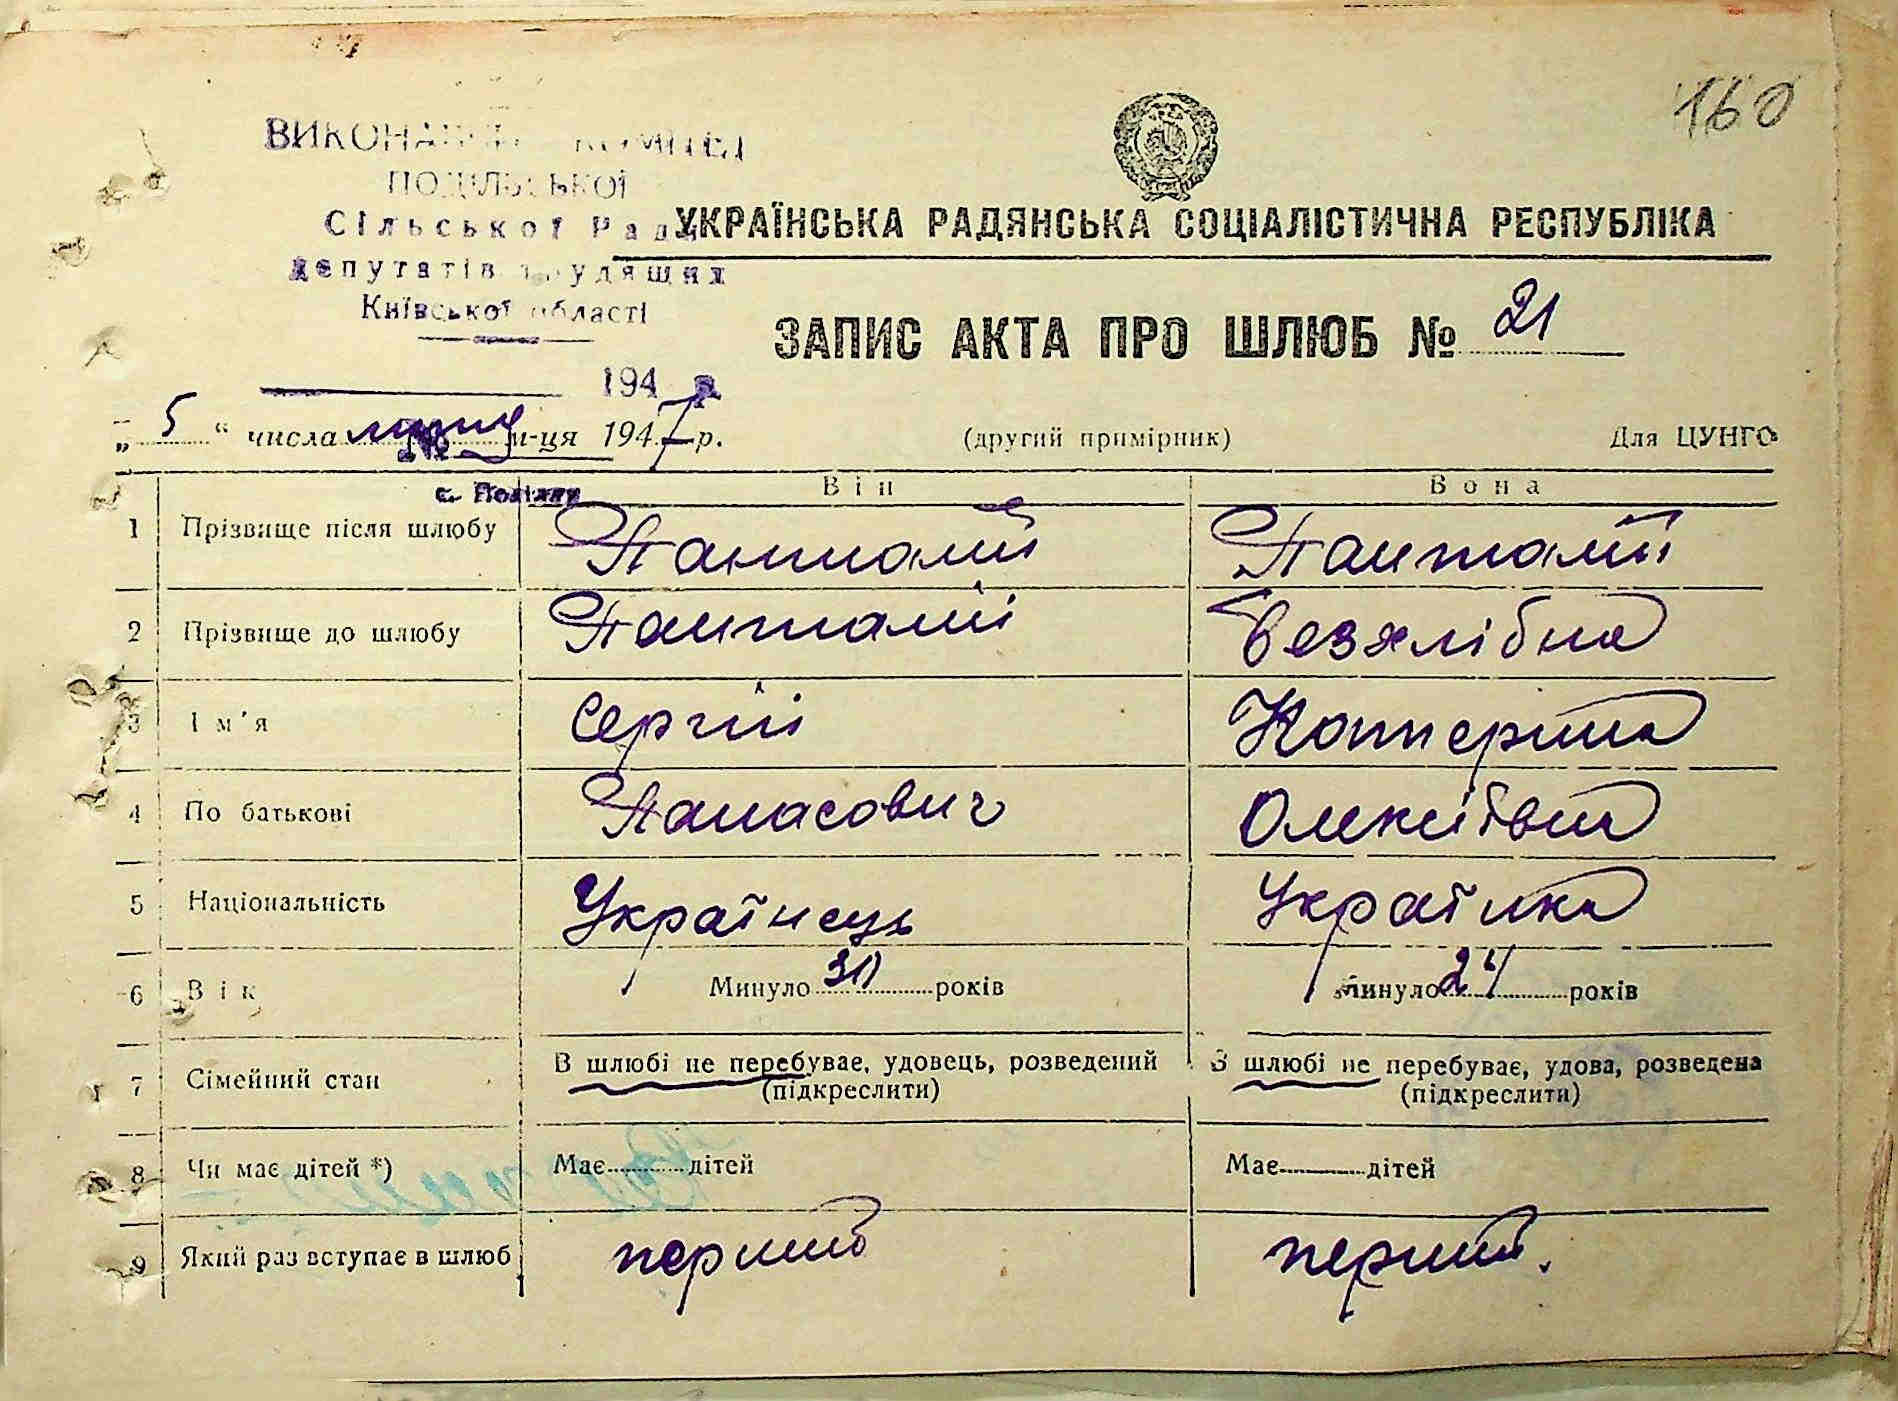 160
ВИКОНАВЧИЙ КОМІТЕТ
ПОДІЛЬСЬКОЇ
Сільської Ради
депутатів трудящих
Київської області
194 р.
с. Поділля
УКРАЇНСЬКА РАДЯНСЬКА СОЦІАЛІСТИЧНА РЕСПУБЛІКА
ЗАПИС АКТА ПРО ШЛЮБ № 21
„5“ числа липня м-ця 1947 р.
(другий примірник)
Для ЦУНГО
Він Вона
1 Прізвище після шлюбу Панталій Панталій
2 Прізвище до шлюбу Панталій Безхлібна
3 Ім'я Сергій Катерина
4 По батькові Панасович Олексіївна
5 Національність Українець Українка
6 Вік Минуло 30 років Минуло 24 років
7 Сімейний стан В шлюбі не перебуває, удовець, розведений В шлюбі не перебуває, удова, розведена
(підкреслити) (підкреслити)
8 Чи має дітей *) Має дітей Має дітей
9 Який раз вступає в шлюб перший перший.